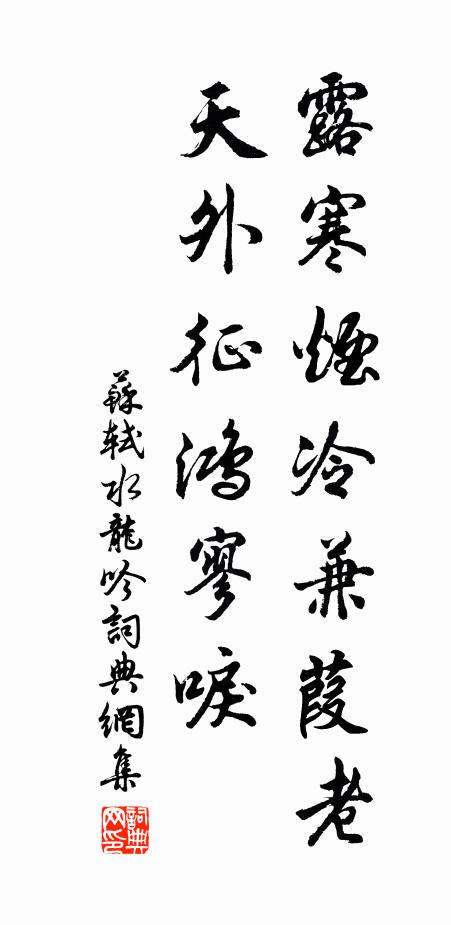 露寒煙冷兼葭老
天外征鴻寥唳
蘇軾水龍吟詞典網集
詞典网印